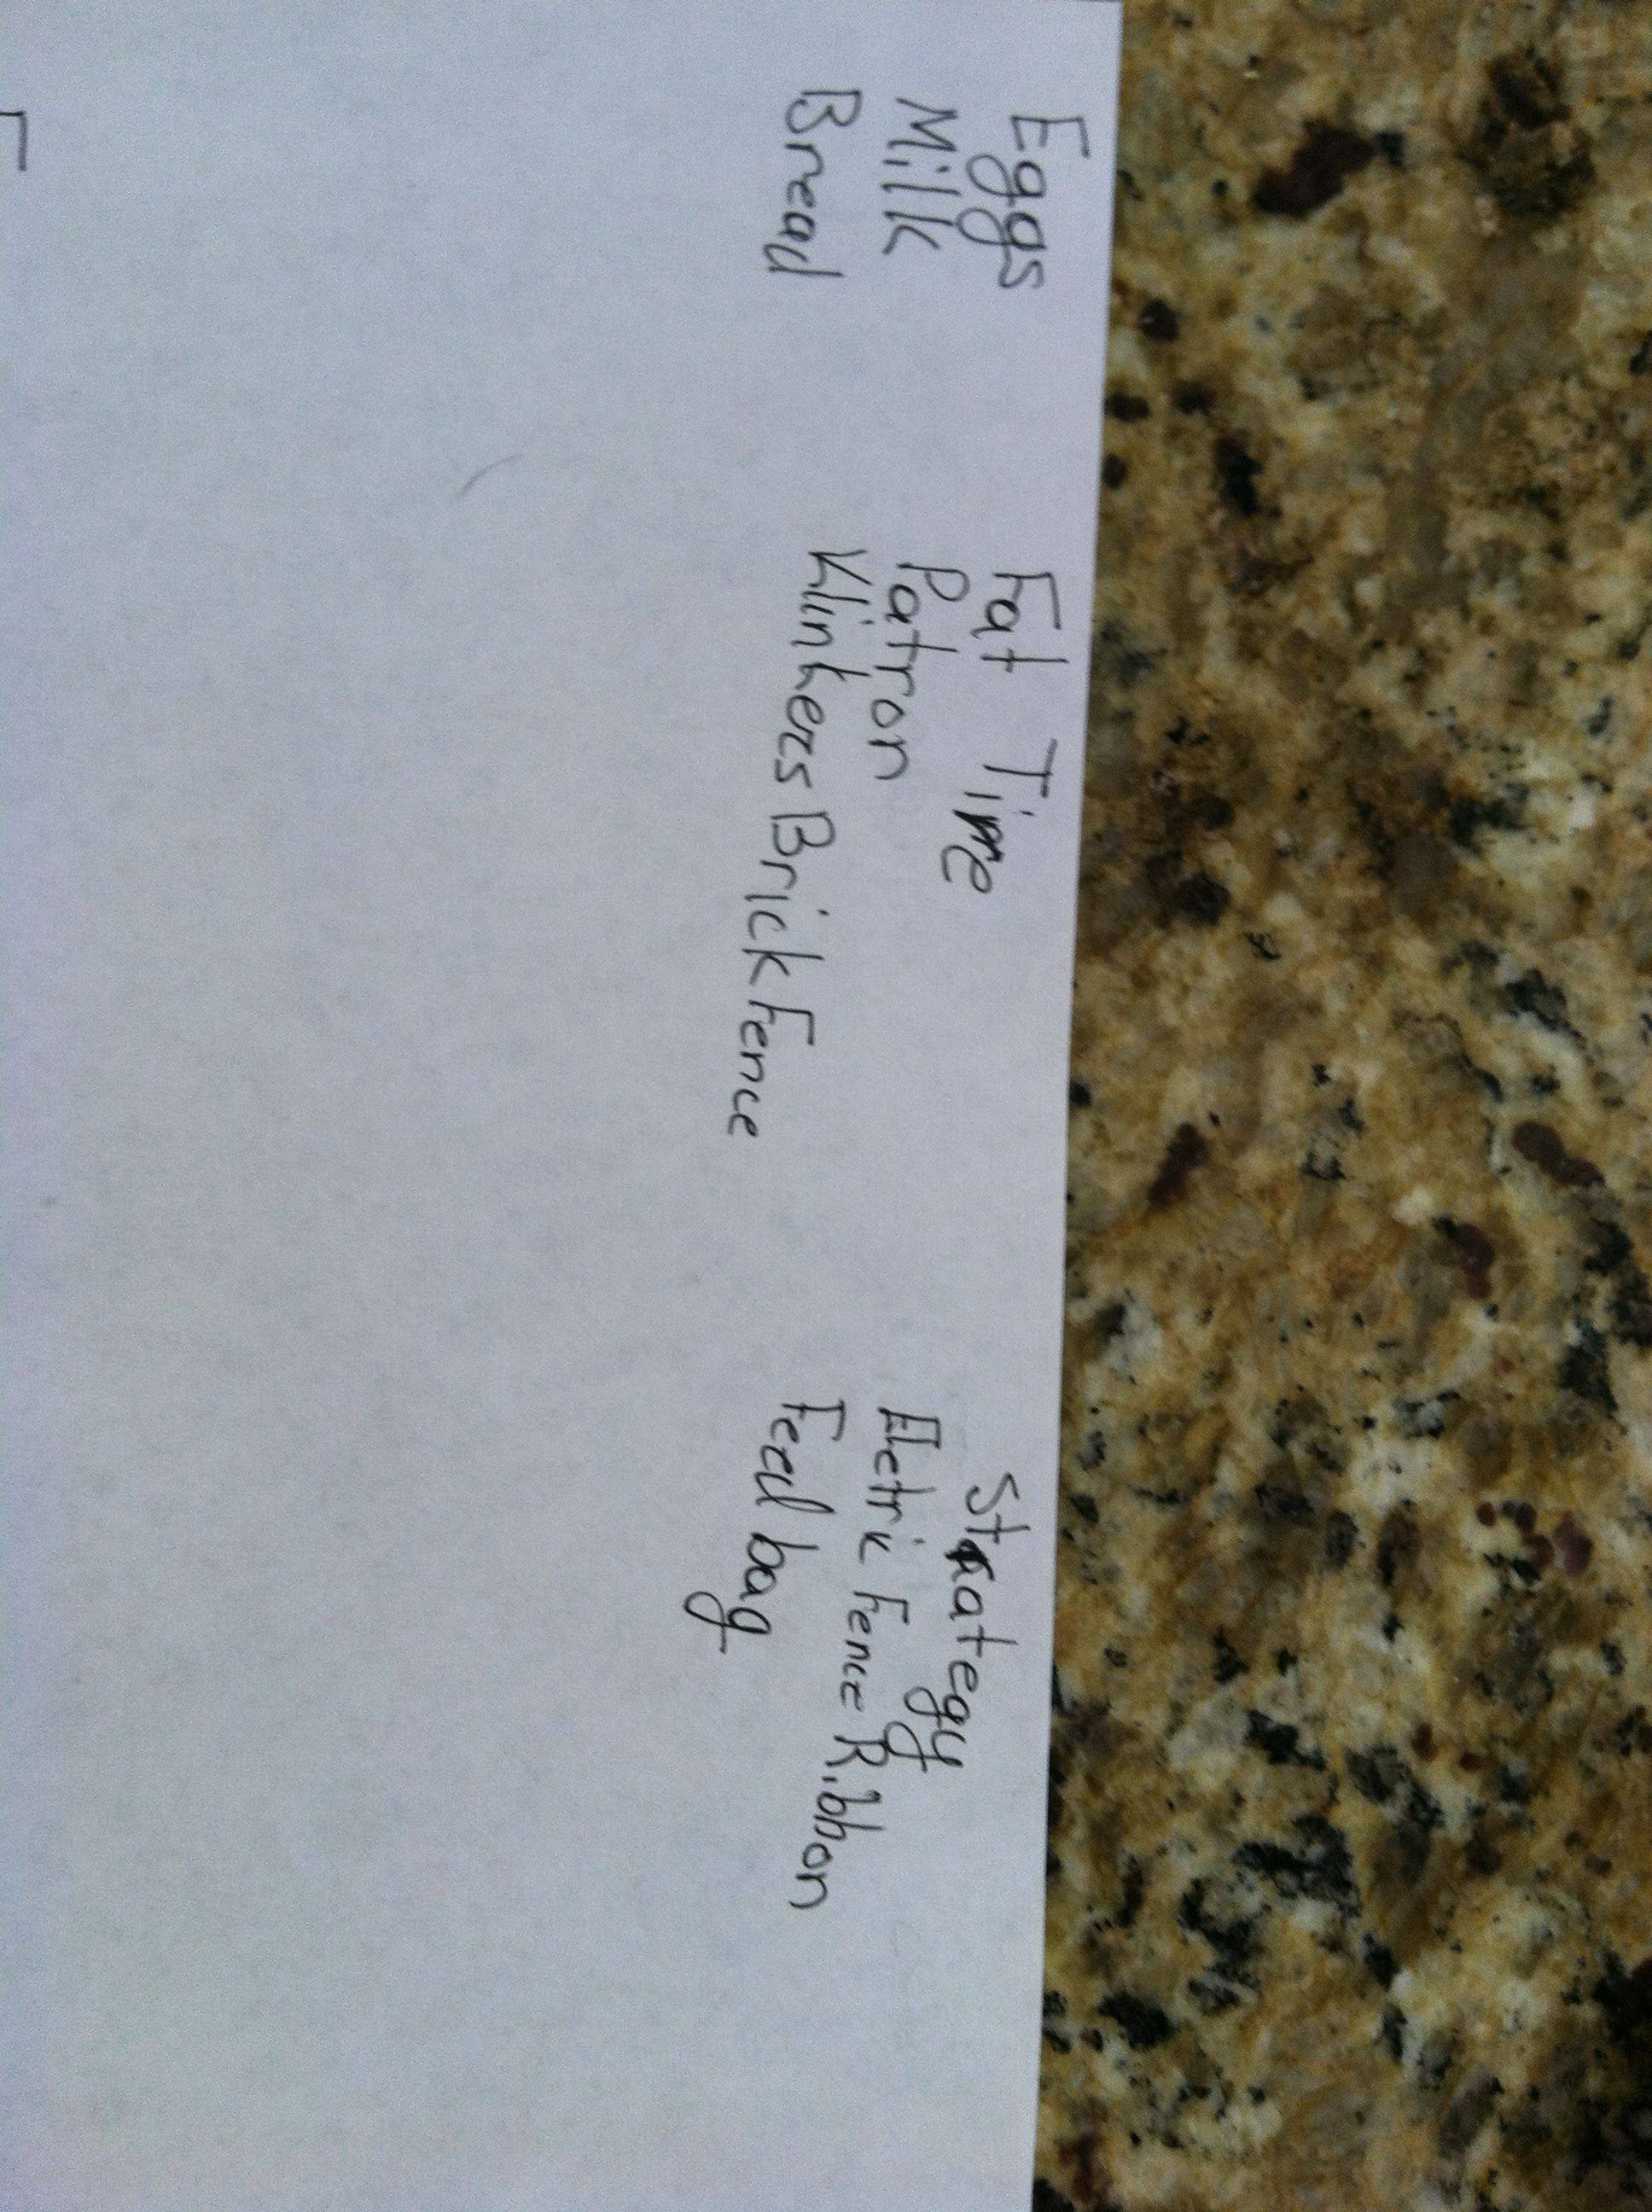 Eggs
Milk
Bread
Fat Tire
Patron
Klinkers Brick Fence
Strategy
Eletric Fence Ribbon
Feed bag